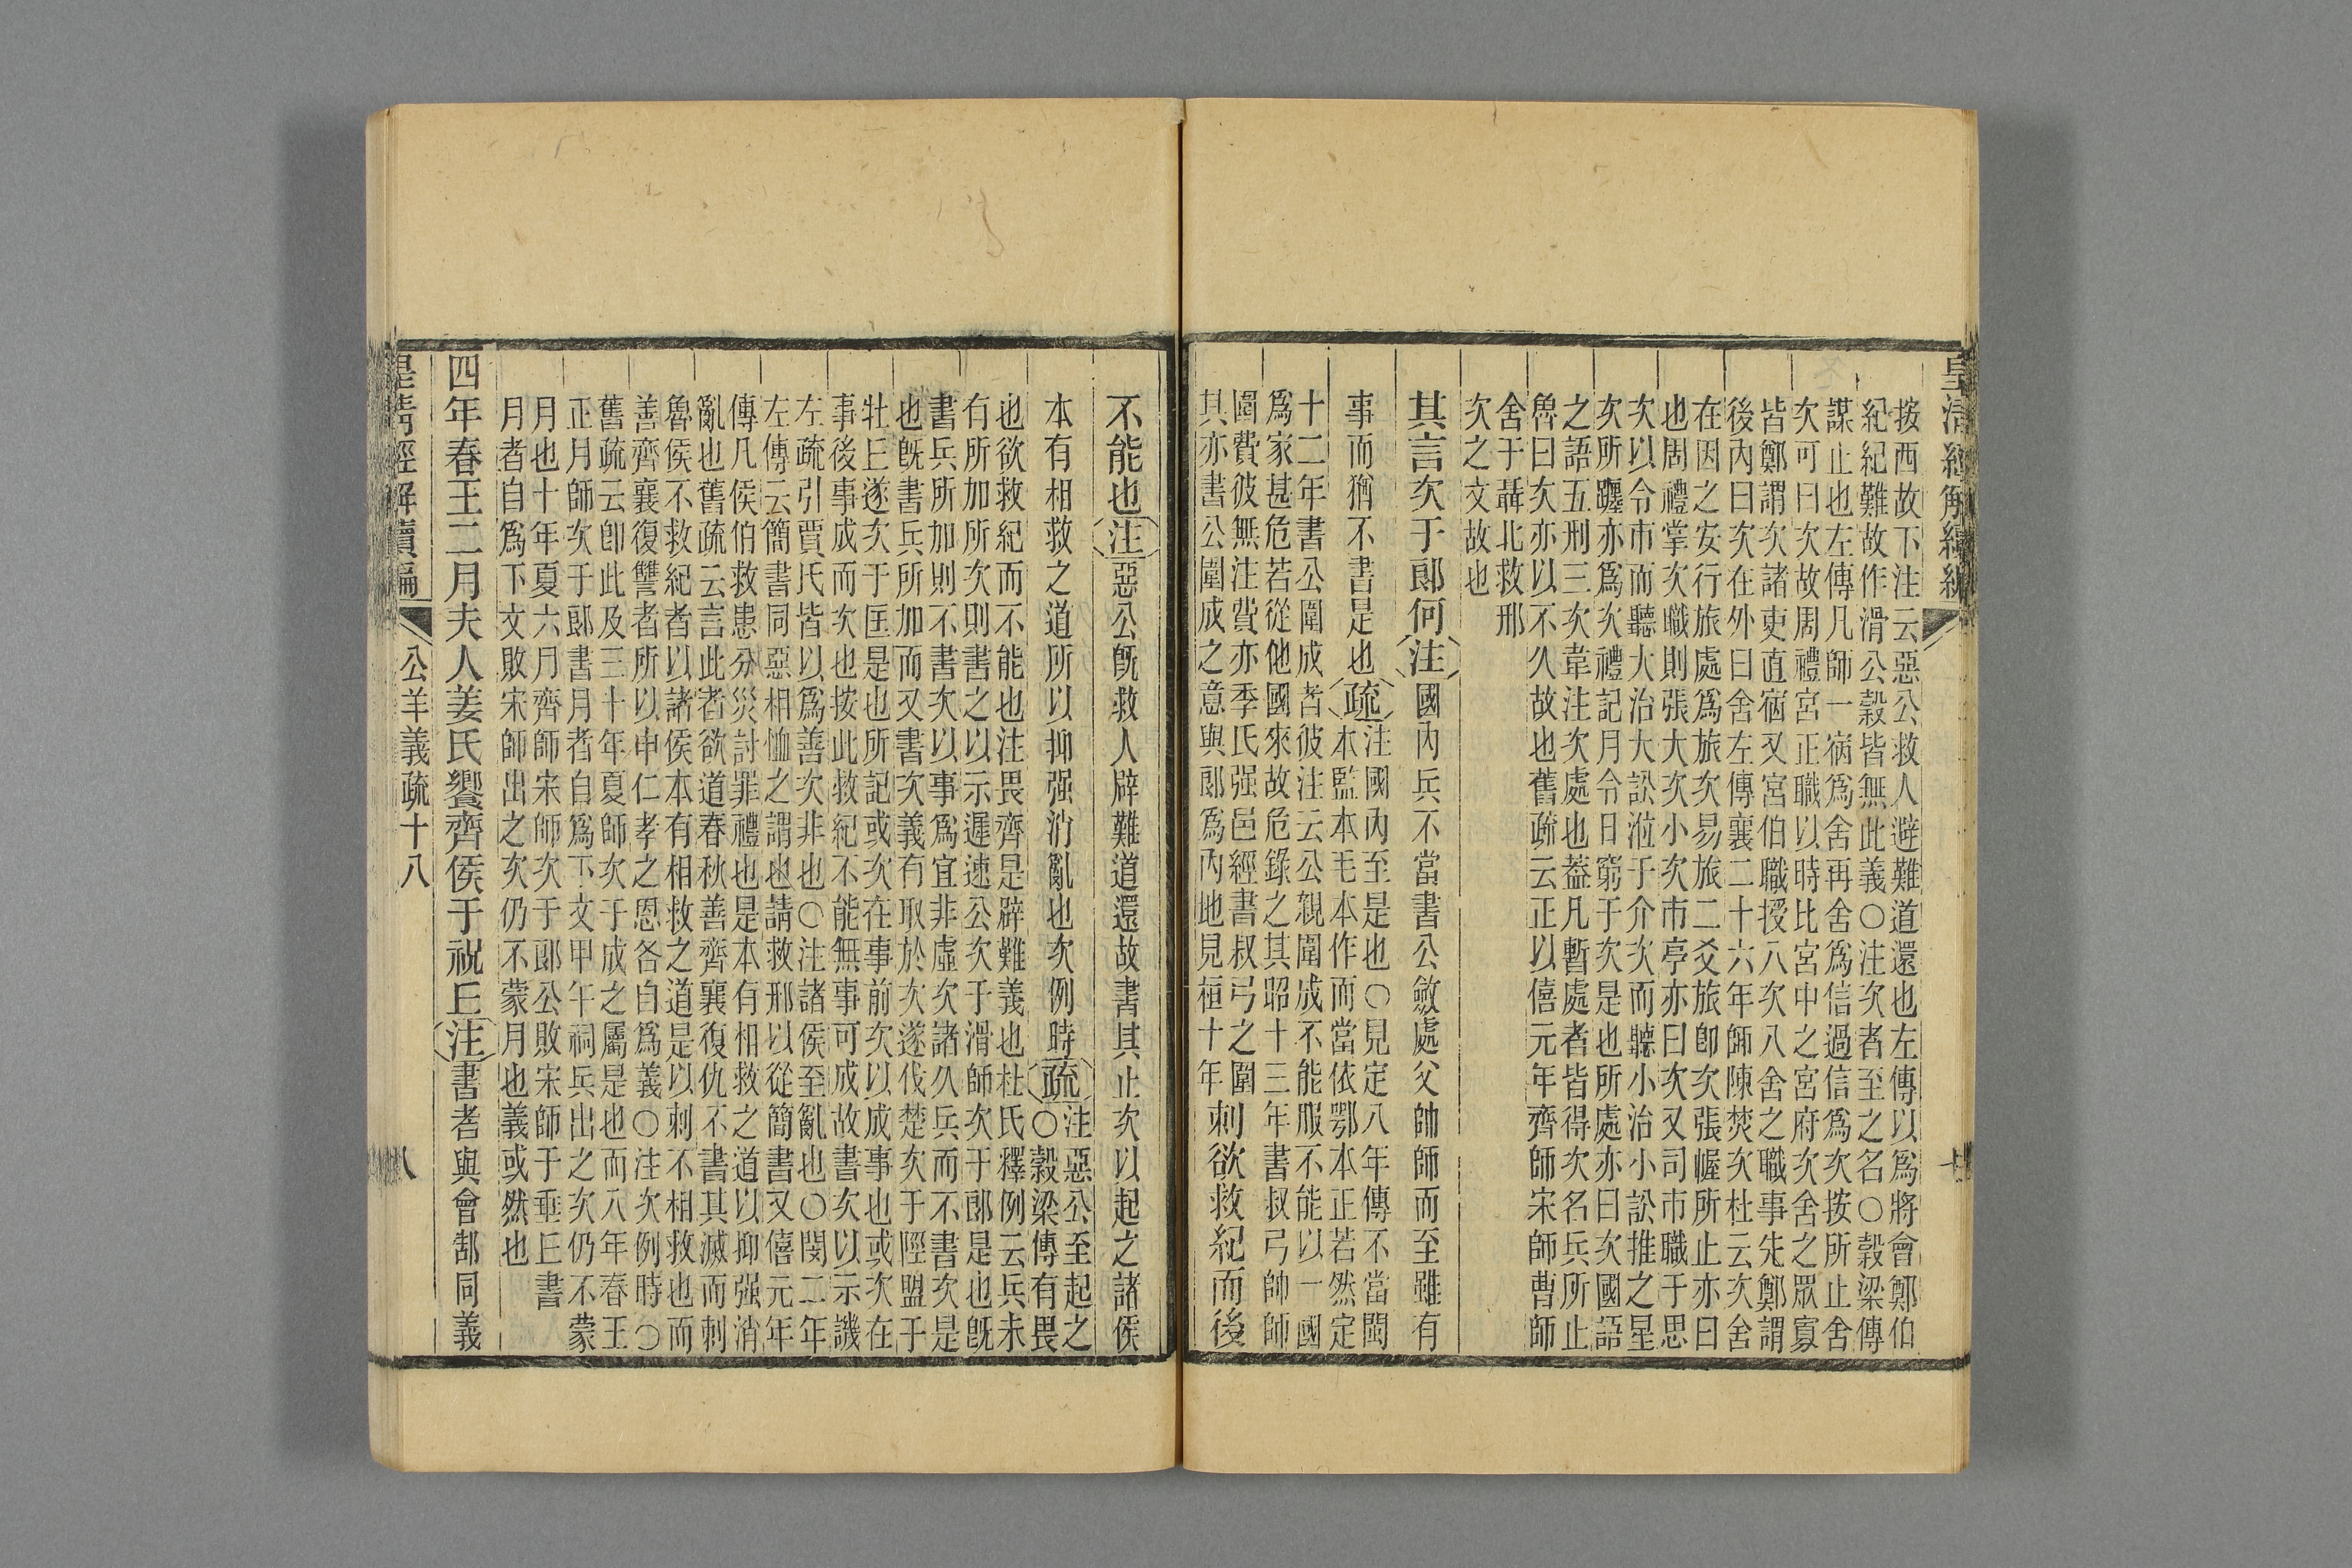 皇清經解續編
按西故下注云惡公救人避難道還也左傳以爲將會鄭伯
紀紀難故作滑公穀皆無此義○注次者至之名○穀梁傳
謀止也左傳凡師一宿爲舍再舍爲信過信爲次按所止舍
次可曰次故周禮宮正職以時比宮中之宮府次舍之眾寡
皆鄭謂次諸吏直宿又宮伯職授八次八舍之職事先鄭謂
後內曰次在外曰舍左傳襄二十六年師陳焚次杜云次舍
在因之安行旅處爲旅次易旅二爻旅卽次張幄所止亦曰
也周禮掌次職則張大次小次市亭亦曰次又司市職于思
次以令市而聽大治大訟涖于介次而聽小治小訟推之星
次所躔亦爲次禮記月令日窮于次是也所處亦曰次國語
之語五刑三次韋注次處也葢凡暫處者皆得次名兵所止
魯曰次亦以不久故也舊疏云正以僖元年齊師宋師曹師
舍于聶北救邢
次之文故也
其言次于郎何注國內兵不當書公斂處父帥師而至雖有
事而猶不書是也疏注國內至是也○見定八年傳不當閩
本監本毛本作而當依鄂本正若然定
十二年書公圍成者彼注云公親圍成不能服不能以一國
爲家甚危若從他國來故危錄之其昭十三年書叔弓帥師
圍費彼無注費亦季氏强邑經書叔弓之圍
其亦書公圍成之意與郎爲內地見桓十年刺欲救紀而後
不能也注惡公旣救人辟難道還故書其止次以起之諸侯
本有相救之道所以抑强消亂也次例時疏注惡公至起之
○穀梁傳有畏
也欲救紀而不能也注畏齊是辟難義也杜氏釋例云兵未
有所加所次則書之以示遲速公次于滑師次于郎是也旣
書兵所加則不書次以事爲宜非虛次諸久兵而不書次是
也旣書兵所加而又書次義有取於次遂伐楚次于陘盟于
牡丘遂次于匡是也所記或次在事前次以成事也或次在
事後事成而次也按此救紀不能無事可成故書次以示譏
左疏引賈氏皆以爲善次非也○注諸侯至亂也○閔二年
左傳云簡書同惡相恤之謂也請救邢以從簡書又僖元年
傳凡侯伯救患分災討罪禮也是本有相救之道以抑强消
亂也舊疏云言此者欲道春秋善齊襄復仇不書其滅而刺
魯侯不救紀者以諸侯本有相救之道是以刺不相救也而
善齊襄復讐者所以申仁孝之恩各自爲義○注次例時○
舊疏云卽此及三十年夏師次于成之屬是也而八年春王
正月師次于郎書月者自爲下文甲午祠兵出之次仍不蒙
月也十年夏六月齊師宋師次于郎公敗宋師于乗丘書
月者自爲下文敗宋師出之次仍不蒙月也義或然也
四年春王二月夫人姜氏饗齊侯于祝丘注書者與會郜同義
皇清經解續編
公羊義疏十八
八